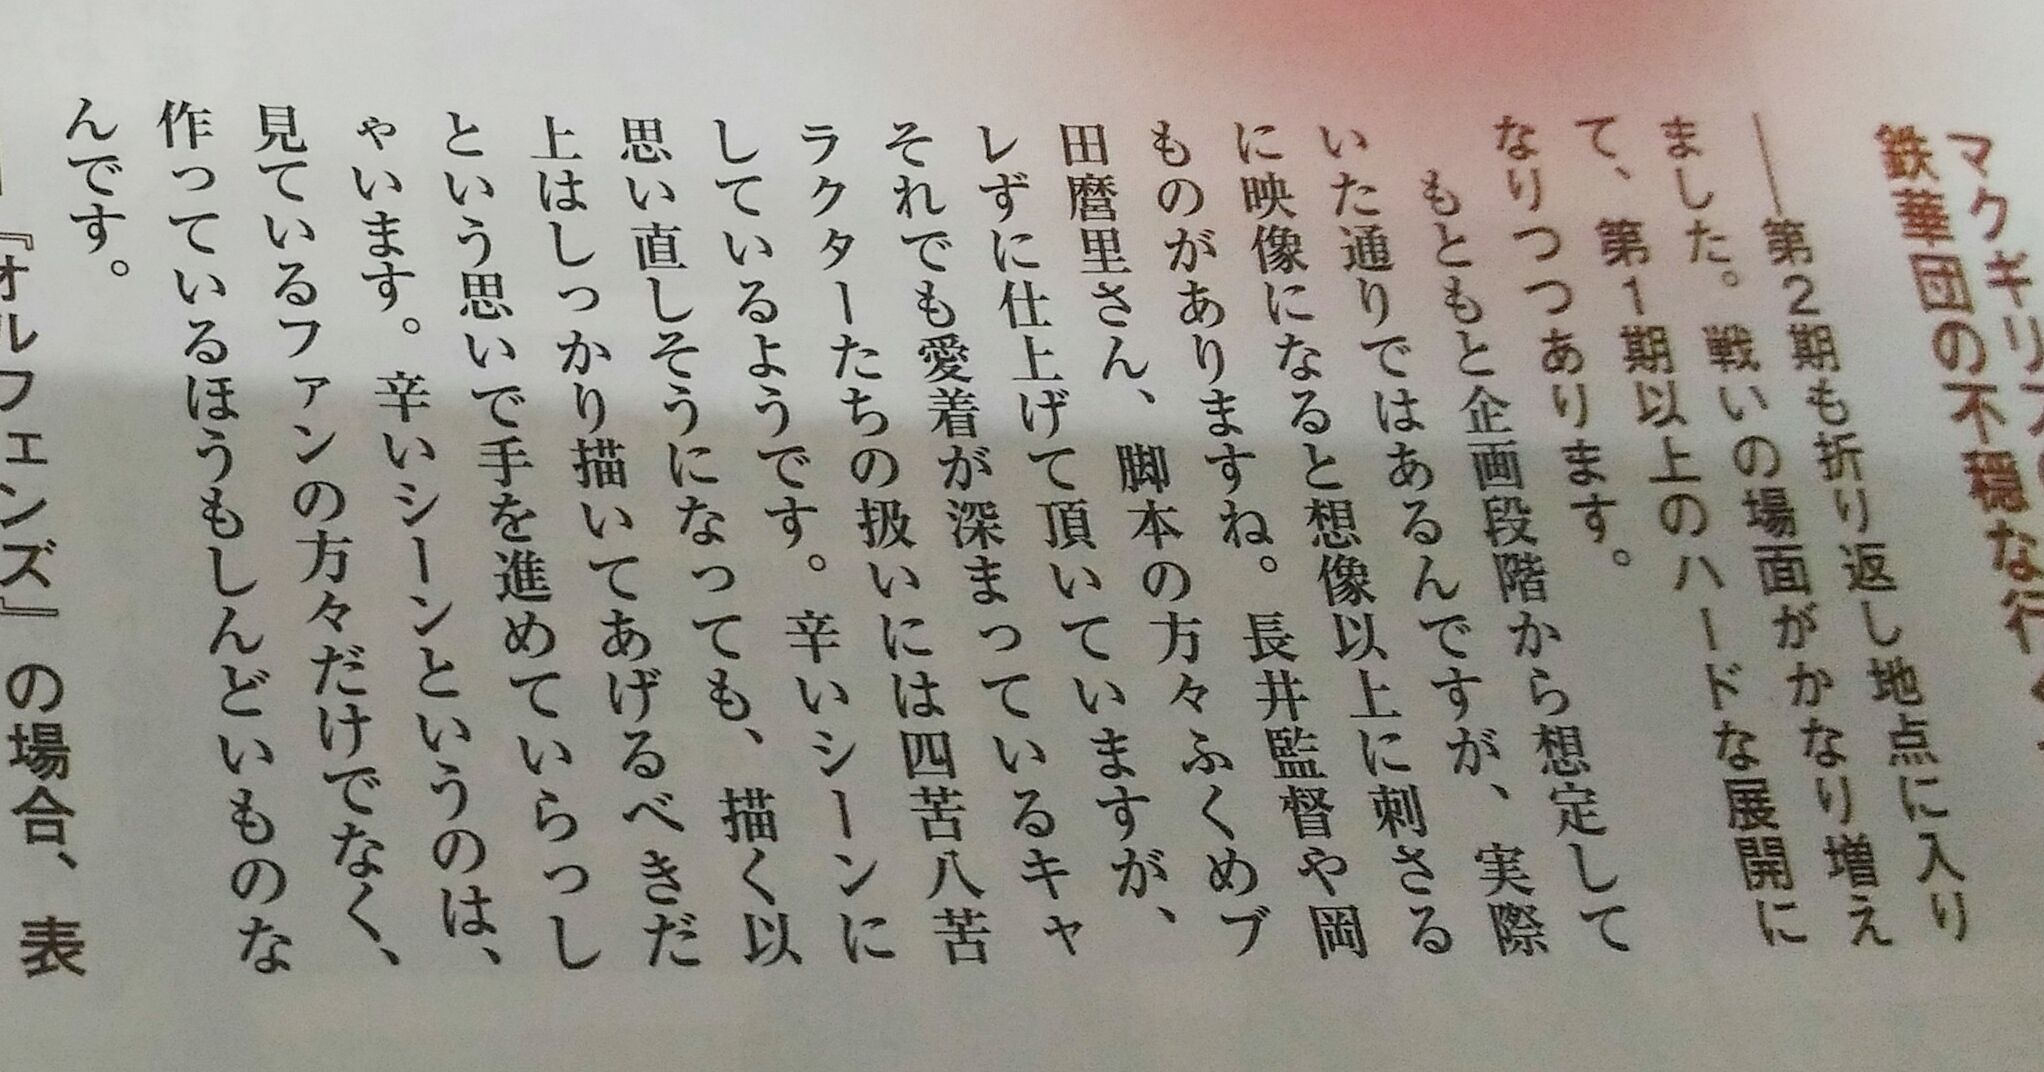 マクギリス
鉄華団の不穏な行
――第2期も折り返し地点に入り
ました。戦いの場面がかなり増え
て、第1期以上のハードな展開に
なりつつあります。
もともと企画段階から想定して
いた通りではあるんですが、実際
に映像になると想像以上に刺さる
ものがありますね。長井監督や岡
田麿里さん、脚本の方々ふくめブ
レずに仕上げて頂いていますが、
それでも愛着が深まっているキャ
ラクターたちの扱いには四苦八苦
しているようです。辛いシーンに
思い直しそうになっても、描く以
上はしっかり描いてあげるべきだ
という思いで手を進めていらっし
ゃいます。辛いシーンというのは、
見ているファンの方々だけでなく、
作っているほうもしんどいものな
んです。
『オルフェンズ』の場合、表